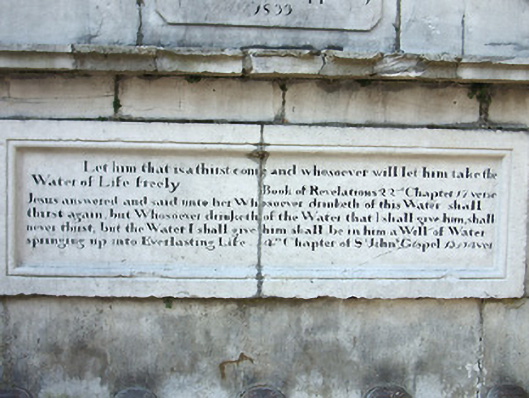 1833
Let him that is a thirst come and whosoever will let him take the
Water of Life freely
Book of Revelations 22nd Chapter 17 verse
Jesus answered and said unto her Whosoever drinketh of this Water shall
thirst again, but Whosoever drinketh of the Water that I shall give him, shall
never thirst, but the Water I shall give him shall be in him a Well of Water
springing up into Everlasting Life 4th Chapter of St John's Gospel 13 14 ver